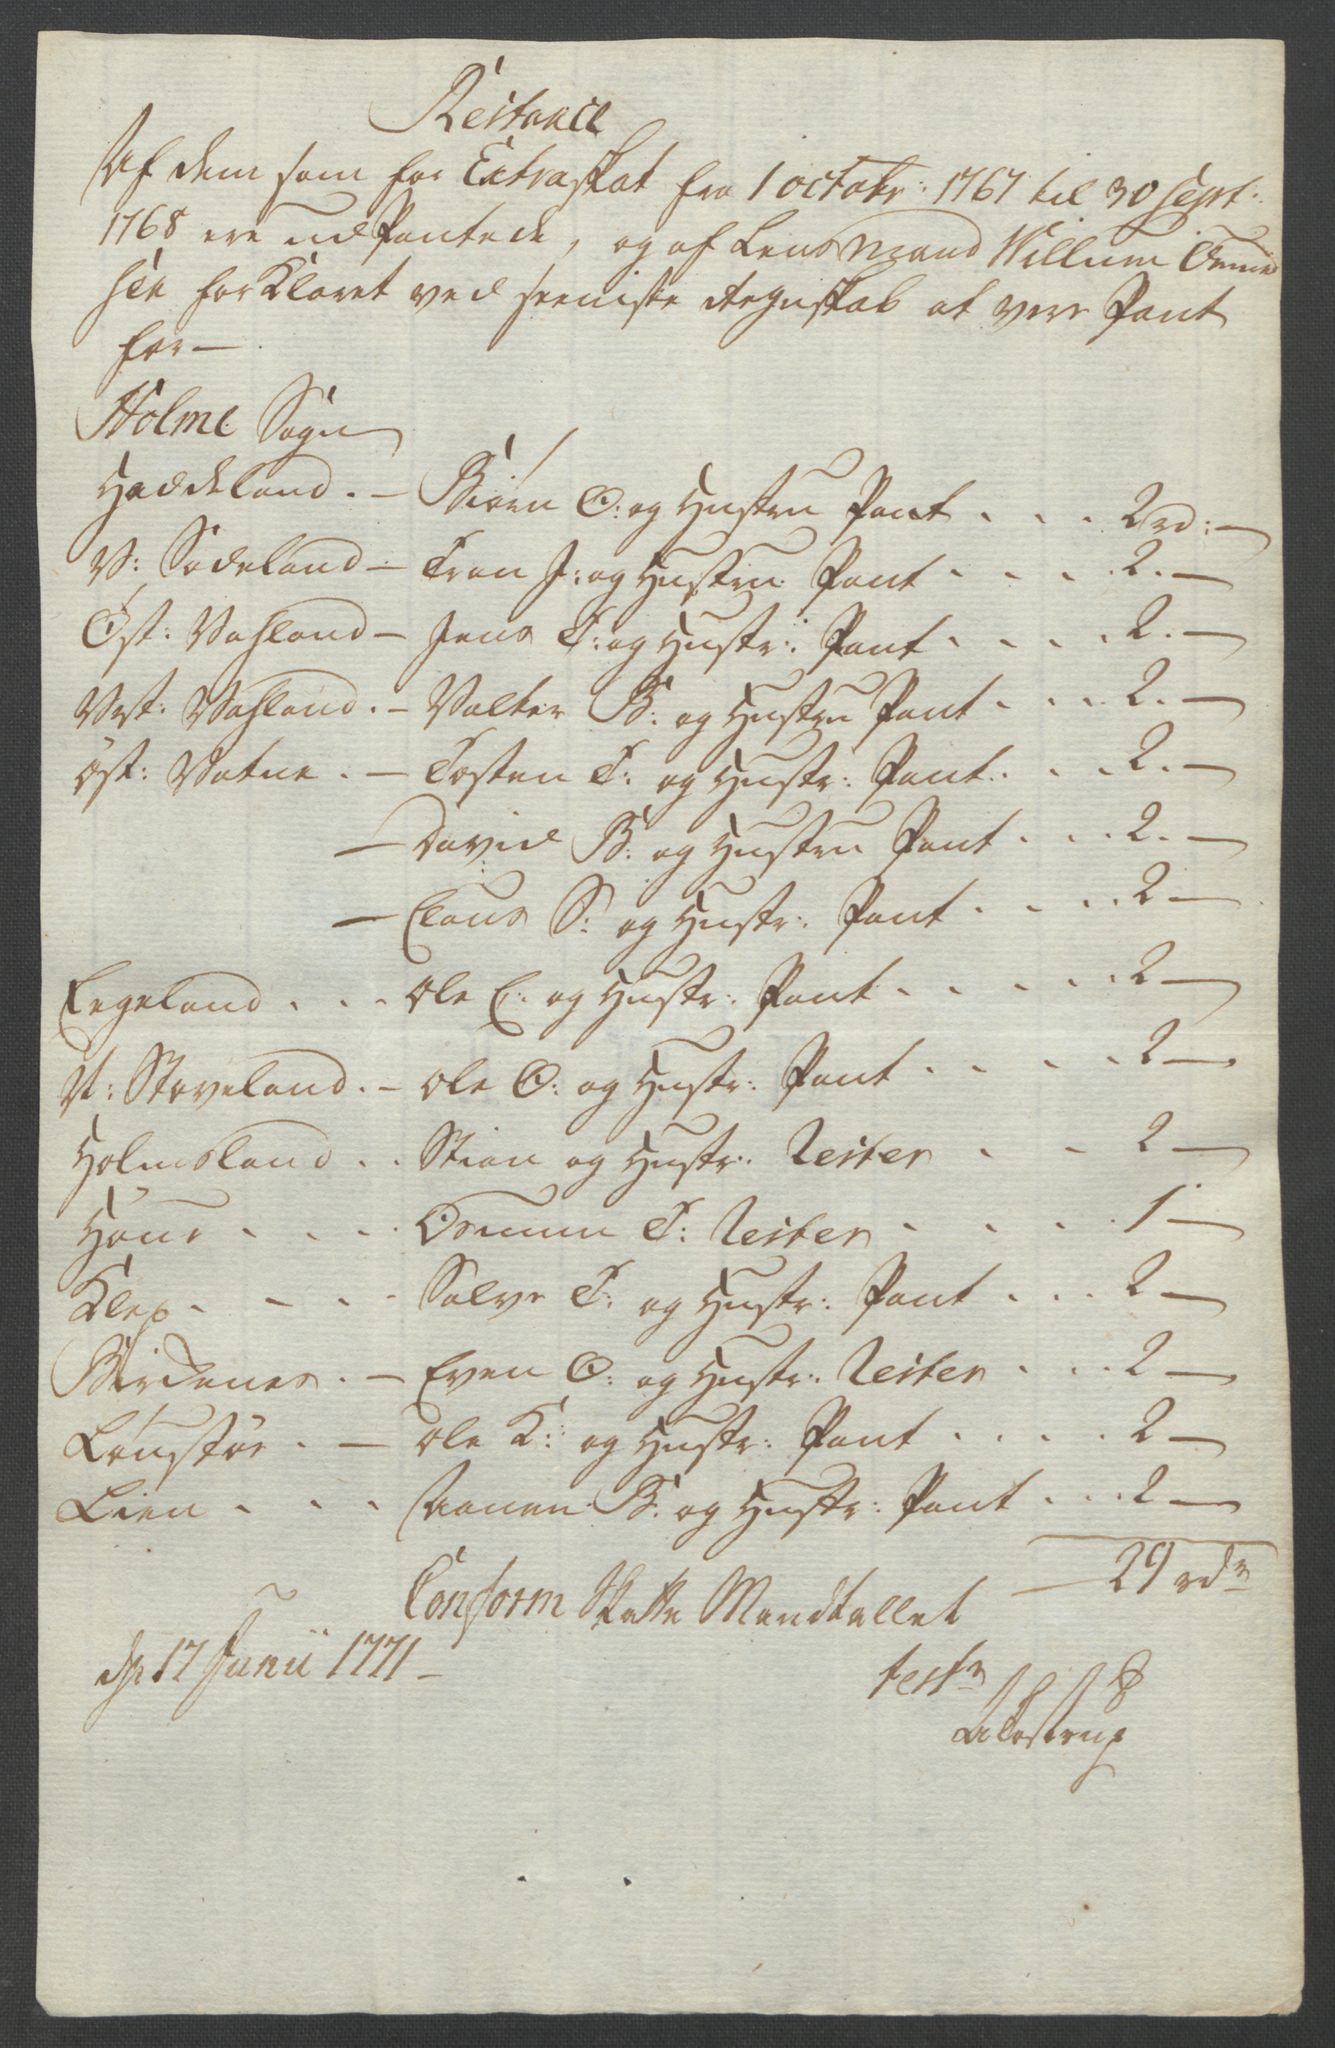 Restance
Af dem som for Extraskat fra 1 octobr: 1767 til 30 Sept:
1768 ere udPantede, og af Lensmand Willum
sen forklaret ved seeniste Regnskab at vere Pant
for —
Holme Sogn
Haddeland . — Biørn O: og Hustru Pant . . . 2 rd: —
V: Sødeland — Tron J: og Hustru Pant . . . . 2. —
Øst: Vahland — Jens T: og Hustr: Pant . . . . 2. —
Vest: Vahland . — Valter B: og Hustru Pant . . . 2. —
Øst: Vatne . — Tosten T: og Hustr: Pant . . . 2. —
— David B: og Hustru Pant . . . 2. —
— Claus S: og Hustr: Pant . . . . 2 —
Eegeland . . . Ole E: og Hustr: Pant . . . . . 2 —
V: Støveland . — Ole O: og Hustr: Pant . . . . 2 —
Holmsland . . Stian og Hustr: Rester . . 2 —
Høne . . . . Osmun T: Rester . . . . 1 —
Klep . . . . Salve T: og Hustr: Pant . . . 2 —
Birdenes . — Even O: og Hustr: Rester . . . 2 —
Lønstør . — Ole K: og Hustr: Pant . . . . 2 —
Lien . . . Aanen B: og Hustr: Pant . . . 2 —
29 rdr
Conform Skatte Mandtallet
d 17 Junii 1771 —
test